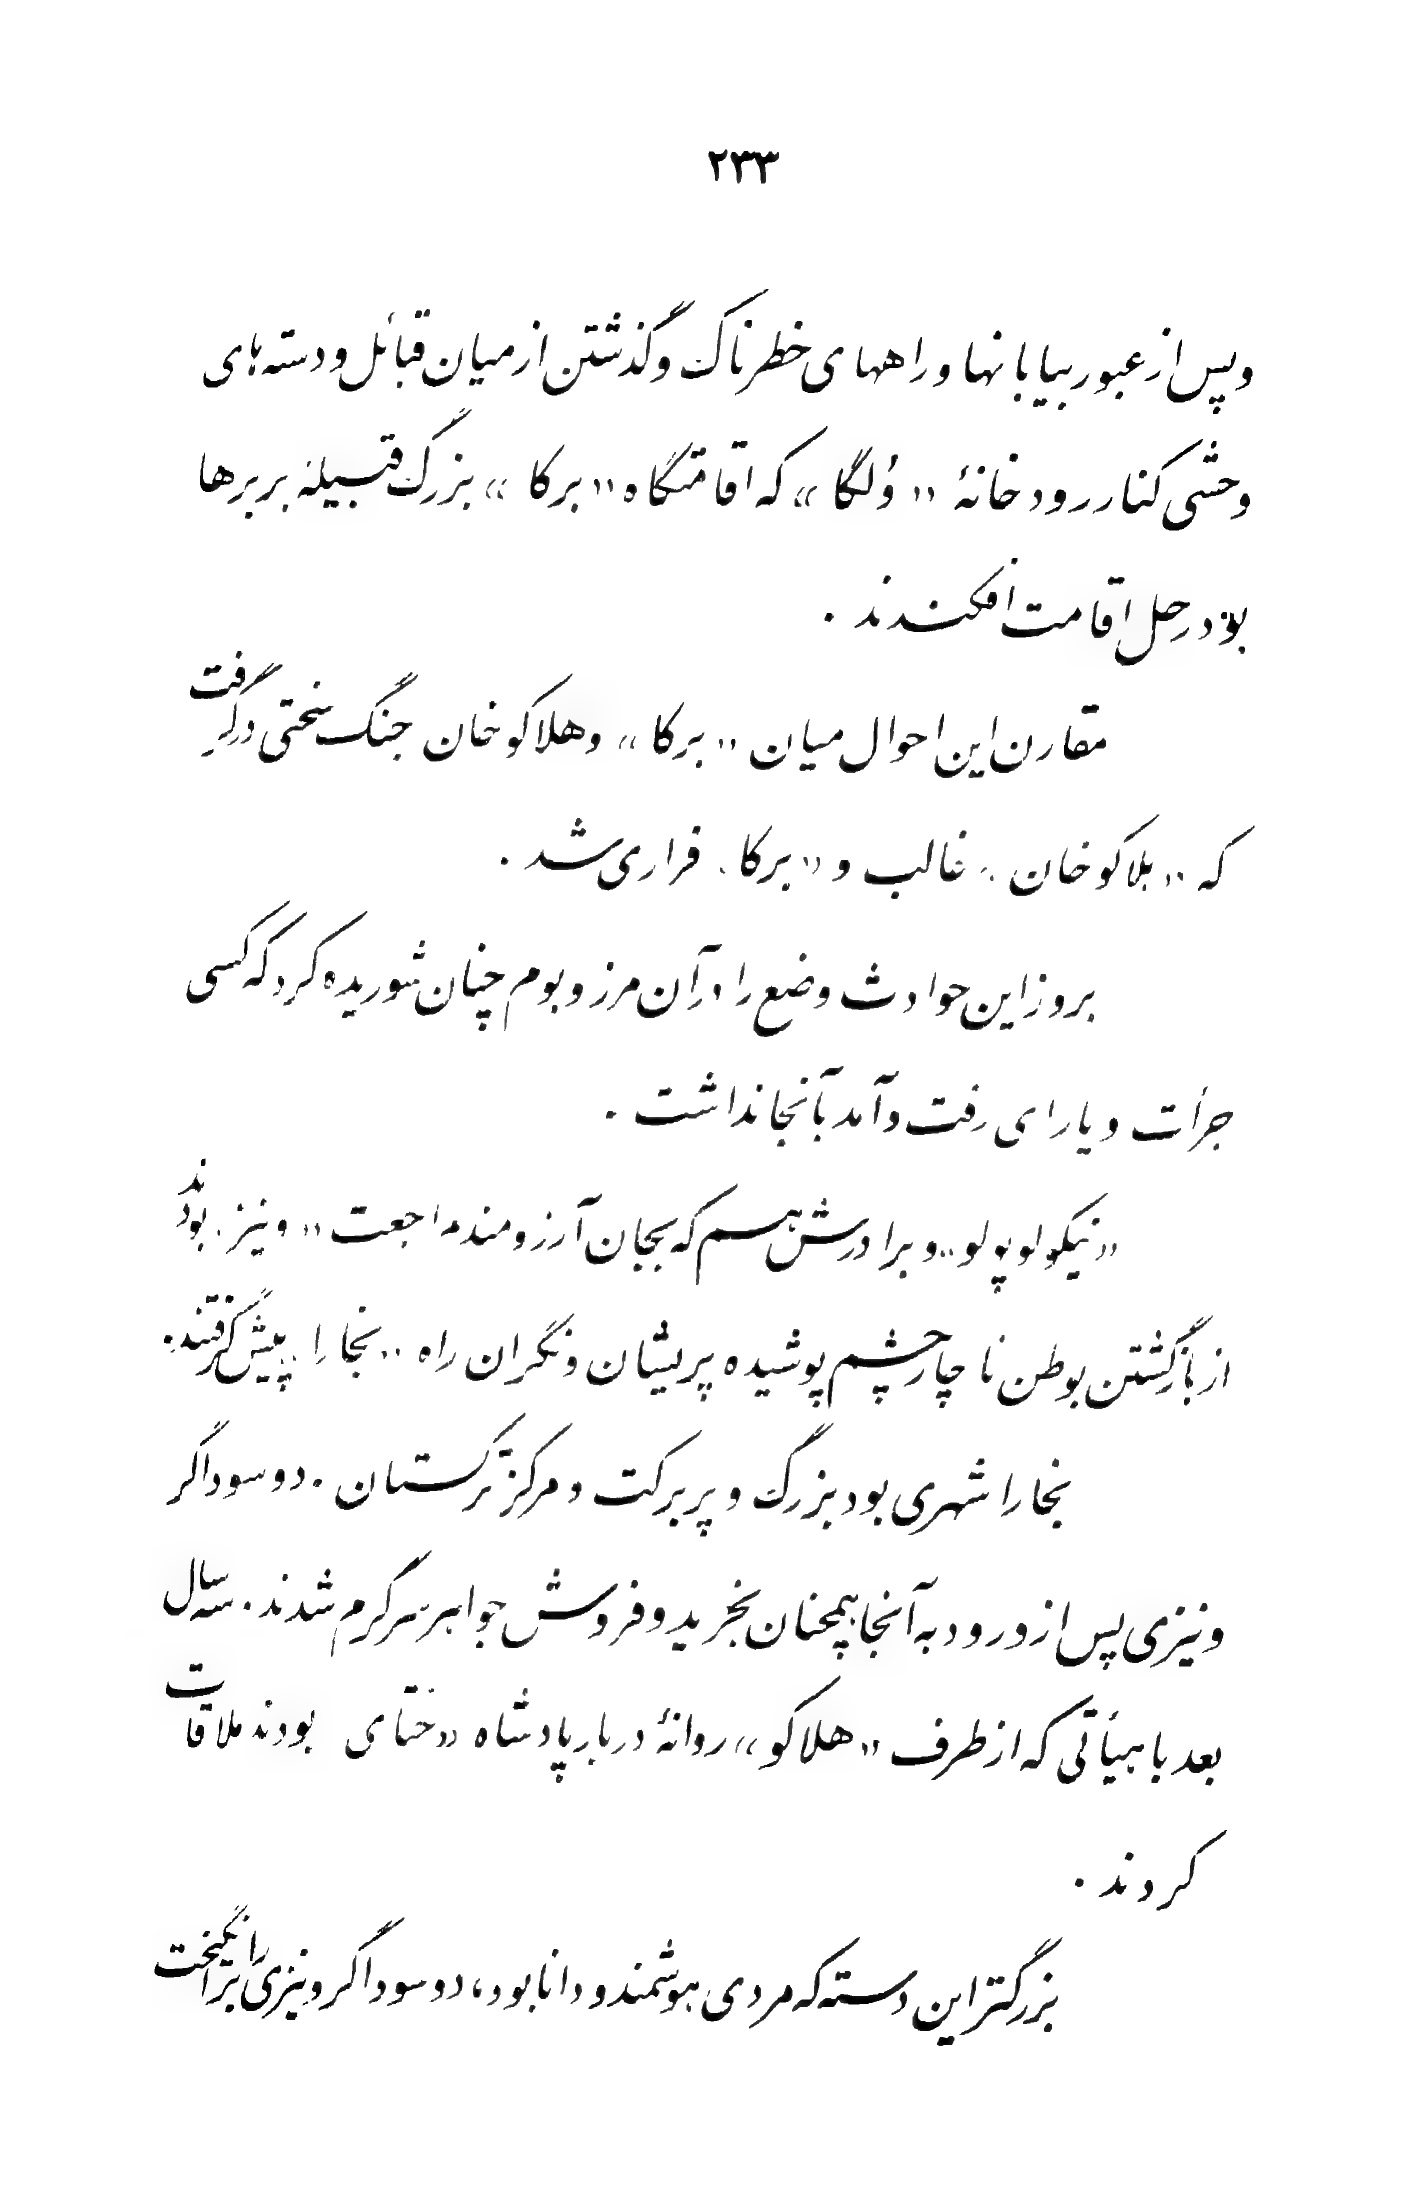 ۲۳۳
و پس از عبور بیابانها و راههای خطرناک و گذشتن از میان قبائل و دسته‌های
وحشی کنار رودخانهٔ «وُلگا» که اقامتگاه «برکا» بزرگ قبیله بربرها
بود رحل اقامت افکندند .
مقارن این احوال میان «برکا» و هلاکوخان جنگ سختی درگرفت
که «هلاکوخان» غالب و «برکا» فراری شد .
بروز این حوادث وضع را در آن مرز و بوم چنان شوریده کرد که کسی
جرأت و یارای رفت و آمد بآنجا نداشت .
«نیکولوپولو» و برادرش هم که بجان آرزومند مراجعت «ونیز» بودند
از بازگشتن بوطن ناچار چشم پوشیده پریشان و نگران راه «بخارا» پیش گرفتند.
بخارا شهری بود بزرگ و پر برکت و مرکز ترکستان . دو سوداگر
ونیزی پس از ورود به آنجا همچنان بخرید و فروش جواهر سرگرم شدند . سه سال
بعد با هیأتی که از طرف «هلاکو» روانهٔ دربار پادشاه «ختای» بودند ملاقات
کردند .
بزرگتر این دسته که مردی هوشمند و دانا بود، دو سوداگر ونیزی را برانگیخت